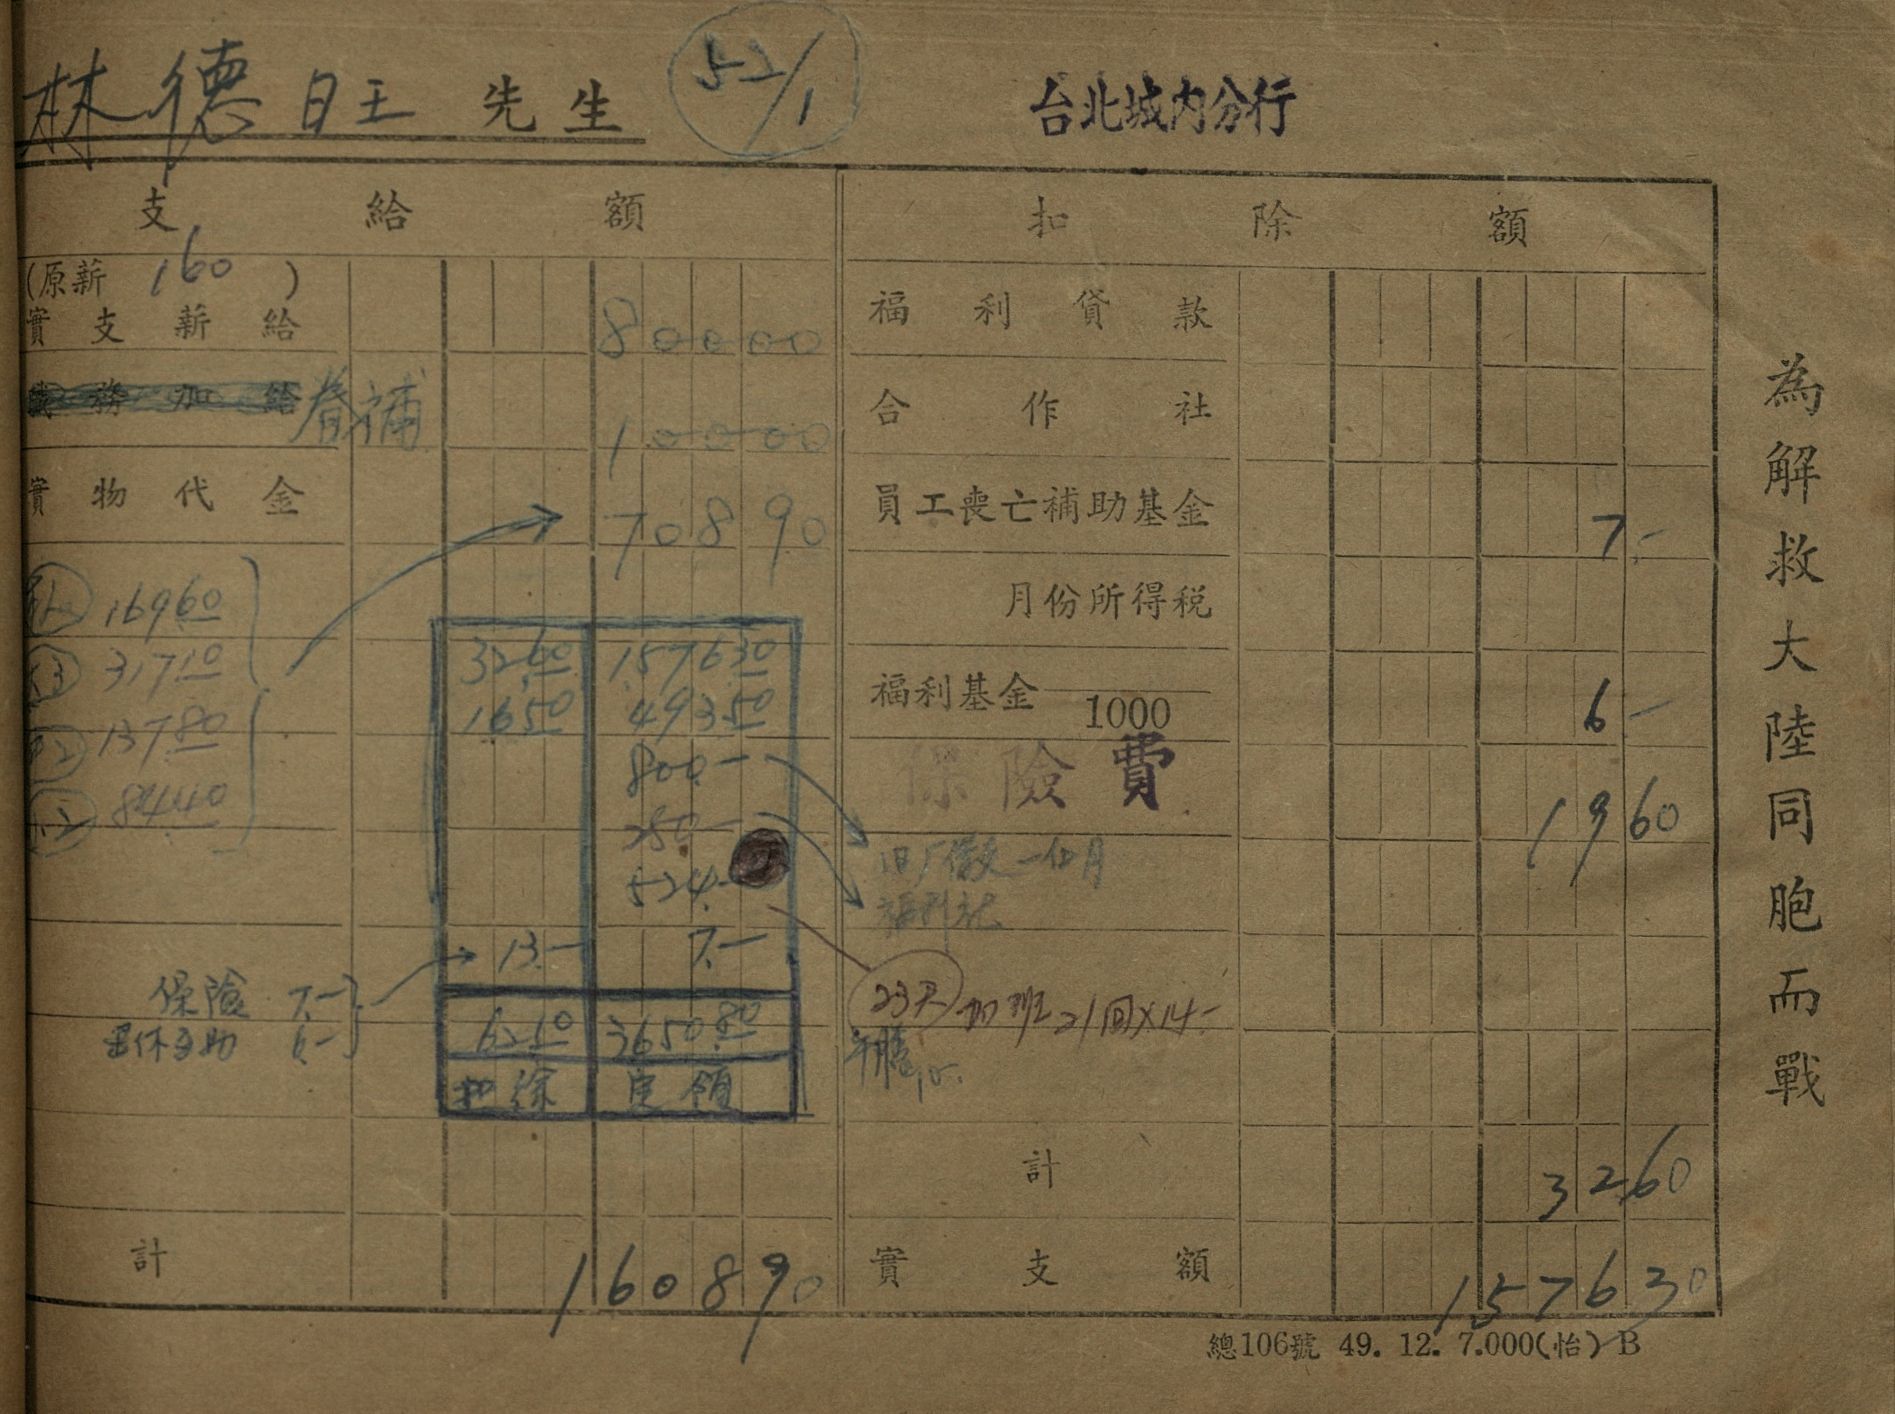 林德旺 先生 52/1 台北城內分行
支給額
(原薪 160 )
實支薪給 80000
職務加給 眷補 10000
實物代金 70890
169.60
317.10
137.80
84.40
32.60 1576.30
16.50 493.50
800.—
250.—
524.—
13.— 7.—
保險 7.—
退休互助 6.—
62.10 3650.80
扣除 實領
計 160890
扣除額
福利貸款
合作社
員工喪亡補助基金 7.—
月份所得稅
福利基金 1000 6—
保險費 1960
福利社
23天 加班21回×14.—
計 3260
實支額 157630
總106號 49. 12. 7.000(怡) B
為解救大陸同胞而戰